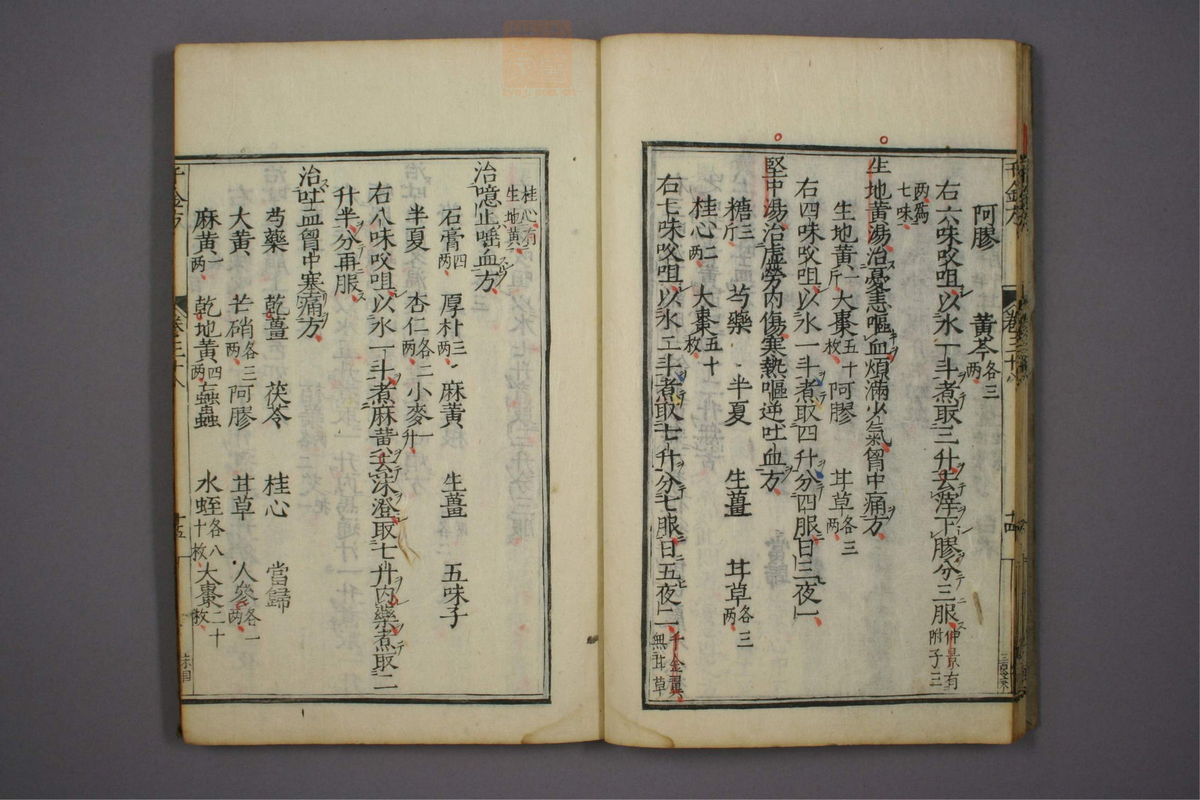 千金方 卷三十八
十四
阿膠 黃芩各三兩
右六味㕮咀以水一斗煮取三升去滓下膠分三服仲景有附子三
兩爲七味
生地黃湯治憂恚嘔血煩滿少氣胷中痛方
生地黃一斤 大棗五十枚 阿膠 甘草各三兩
右四味㕮咀以水一斗煮取四升分四服日三夜一
堅中湯治虛勞內傷寒熱嘔逆吐血方
糖三斤 芍藥 半夏 生薑 甘草各三兩
桂心二兩 大棗五十枚
右七味㕮咀以水二斗煮取七升分七服日五夜二千金翼無甘草
桂心有生地黃
治噫止唾血方
石膏四兩 厚朴三兩 麻黃 生薑 五味子
半夏 杏仁各二兩 小麥一升
右八味㕮咀以水一斗煮麻黃去沫澄取七升內藥煮取二
升半分再服
治吐血胷中塞痛方
芍藥 乾薑 茯苓 桂心 當歸
大黃 芒硝各三兩 阿膠 甘草 人參各一兩
麻黃一兩 乾地黃四兩 蝱蟲 水蛭各八十枚 大棗二十枚
千金方 卷三十八
十五